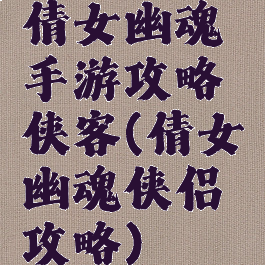 倩女幽魂
手游攻略
侠客(倩女
幽魂侠侣
攻略)